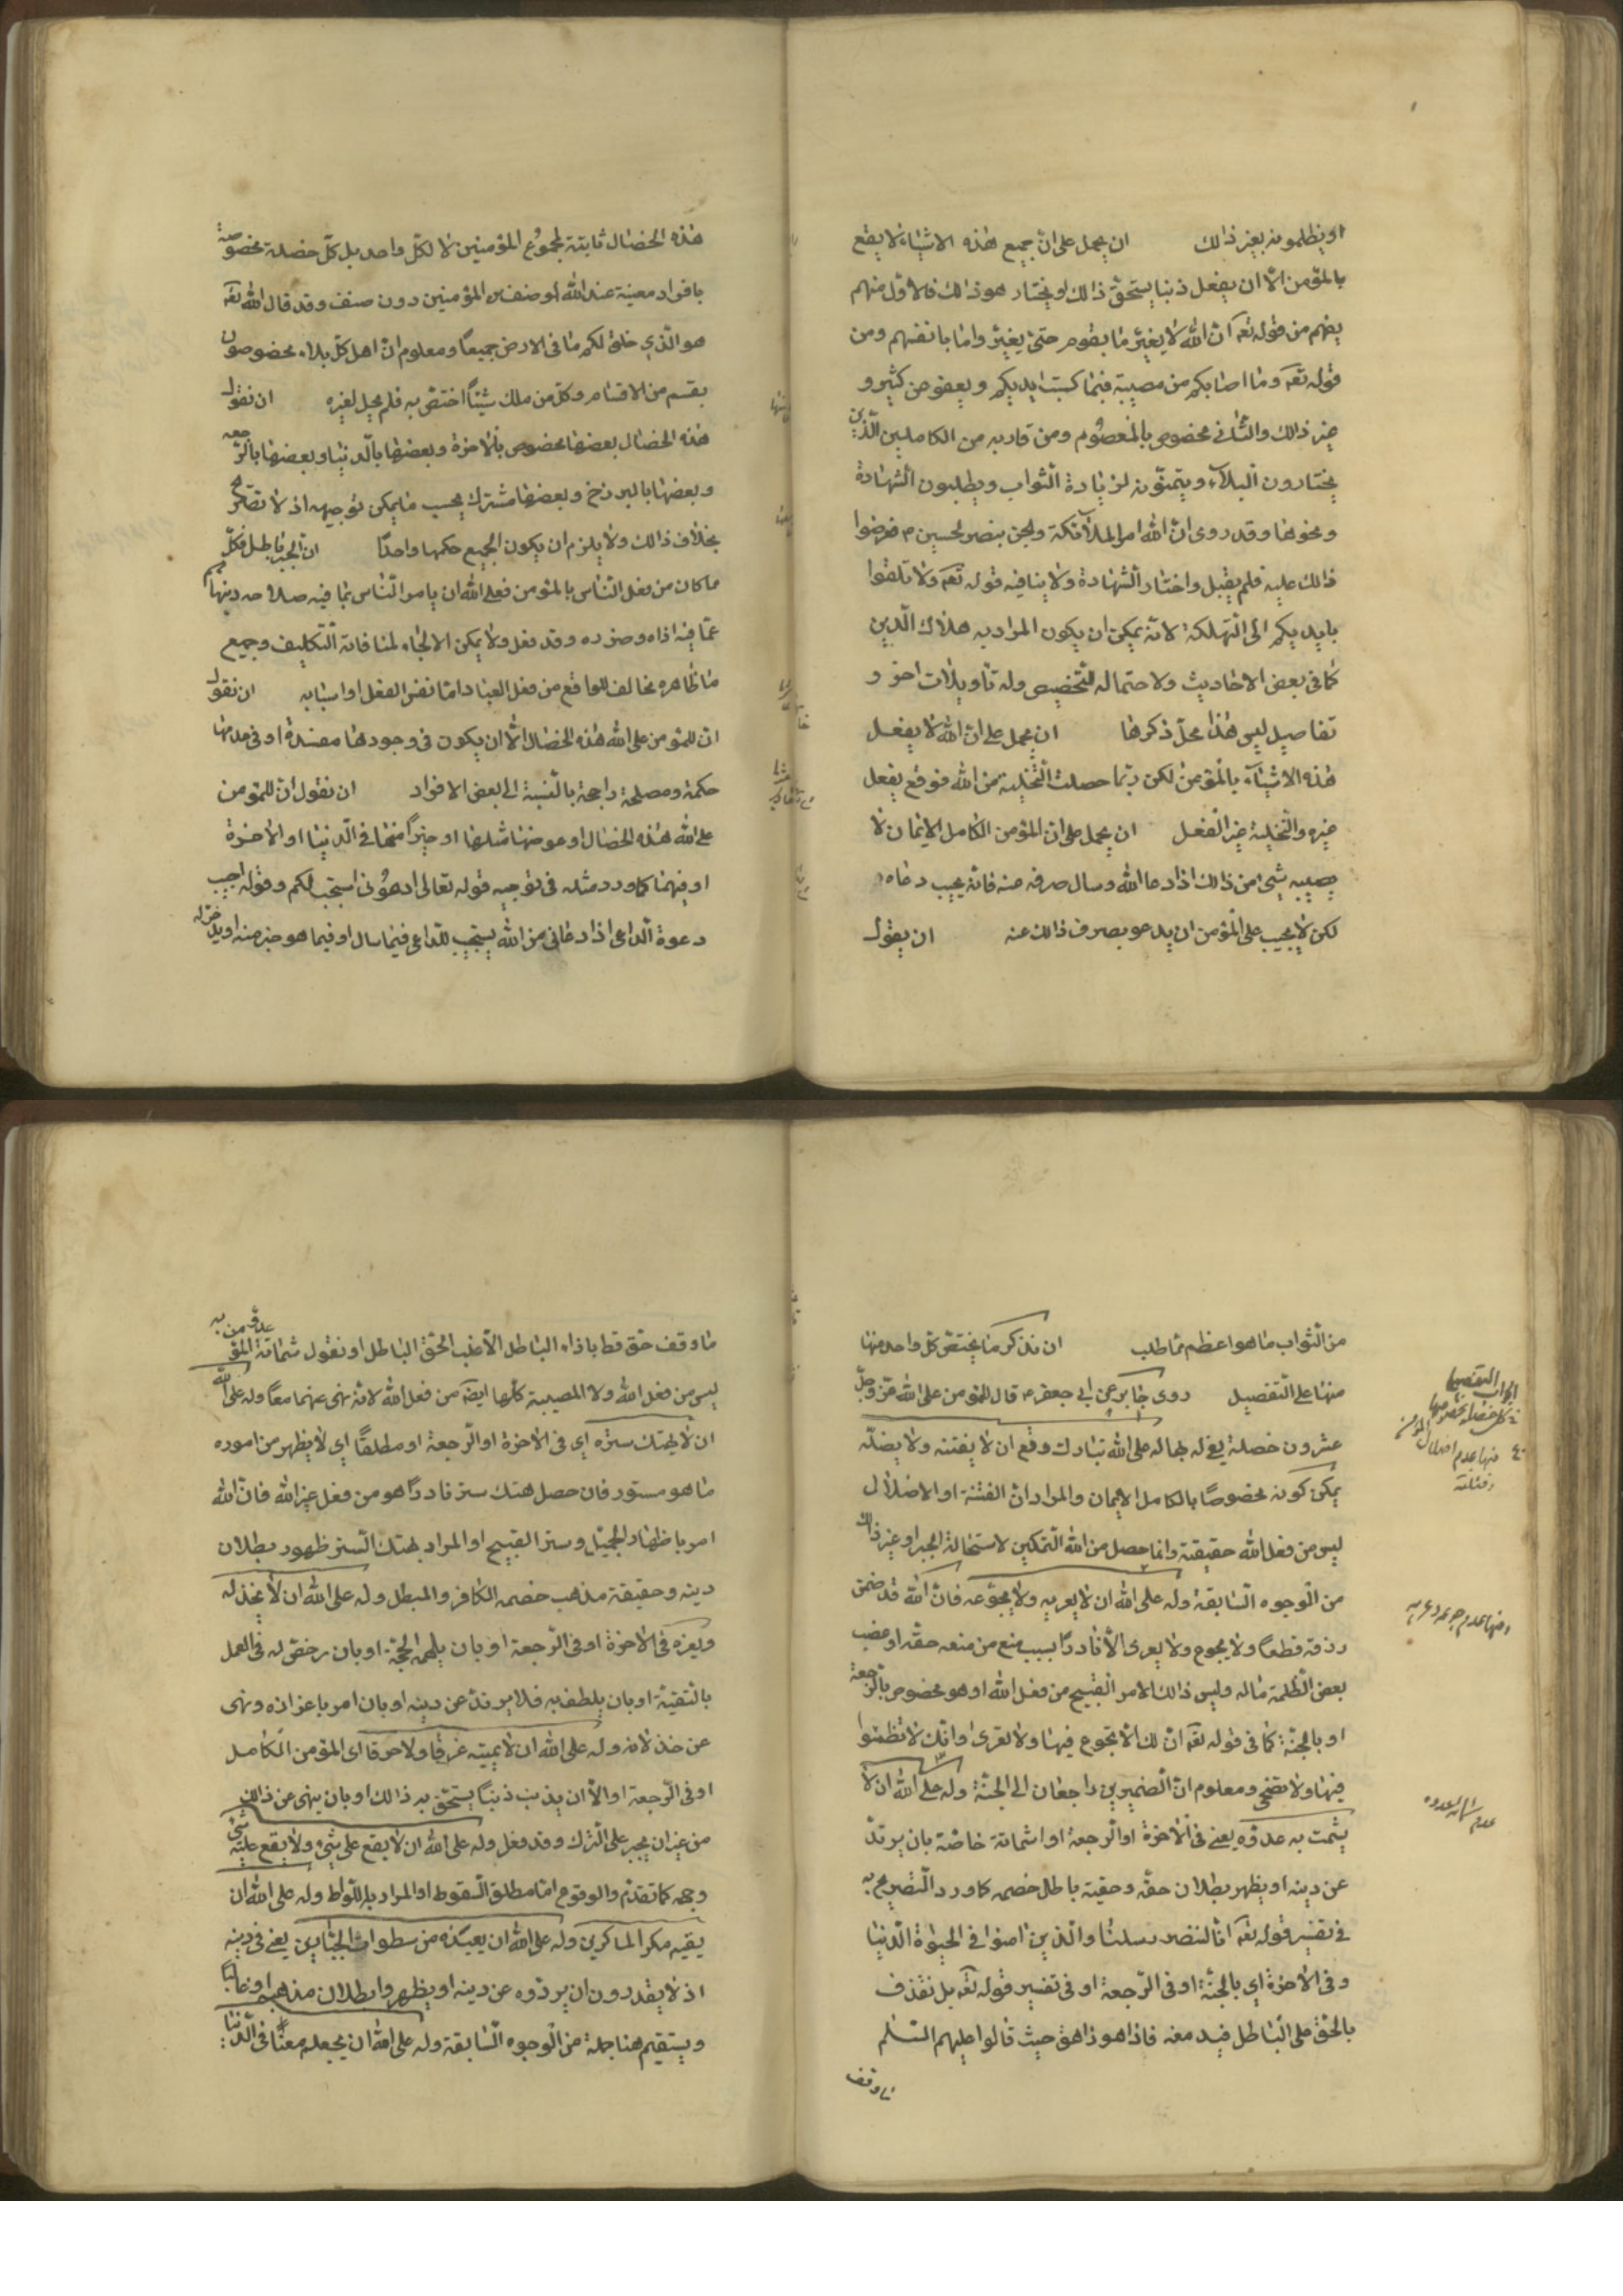 او يظلمونه بغير ذالك ان يحمل على ان جميع هذه الاشياء لا يقع
بالمؤمن الا ان يفعل ذنبا يستحق ذالك او يختار هو ذالك فالاول منهم
يفهم من قوله تعه ان الله لا يغير ما بقوم حتى يغيروا ما بانفسهم ومن
قوله تعه وما اصابكم من مصيبة فبما كسبت ايديكم ويعفو عن كثير و
غير ذالك والثاني مخصوص بالمعصوم ومن قاربه من الكاملين الذين
يختارون البلاء ويتمنونه لزيادة الثواب ويطلبون الشهادة
ونحوها وقد روى ان الله امر الملائكة والجن بنصر الحسين ع فعرضوا
ذالك عليه فلم يقبل واختار الشهادة ولا ينافيه قوله تعه ولا تلقوا
بايديكم الى التهلكة لانه يمكن ان يكون المراد به هلاك الدين
كما في بعض الاحاديث ولاحتماله التخصيص وله تاويلات اخر و
تفاصيل ليس هذا محل ذكرها ان يحمل على ان الله لا يفعل
هذه الاشياء بالمؤمن لكن ربما حصلت التخلية من الله فوقع بفعل
غيره والتخلية غير الفعل ان يحمل على ان المؤمن الكامل الايمان لا
يصيبه شئ من ذالك اذا دعا الله وسال صرفه عنه فانه يجيب دعاه
لكن لا يجب على المؤمن ان يدعو بصرف ذالك عنه ان يقول
هذه الخصال ثابتة لمجموع المؤمنين لا لكل واحد بل كل خصلة مخصوصة
بافراد معينة عند الله او صنف من المؤمنين دون صنف وقد قال الله تعه
هو الذي خلق لكم ما في الارض جميعا ومعلوم ان اهل كل بلاد مخصوصون
بقسم من الاقسام وكل من ملك شيئا اختص به فلم يحل لغيره ان نقول
هذه الخصال بعضها مخصوص بالاخرة وبعضها بالدنيا وبعضها بالرجعه
وبعضها بالبرزخ وبعضها مشترك بحسب ما يمكن توجيهه اذ لا تصريح
بخلاف ذالك ولا يلزم ان يكون الجميع حكمها واحدا ان الجبر باطل فكل
ما كان من فعل الناس بالمؤمن فعلى الله ان يامر الناس بما فيه صلاحه وينهاهم
عما فيه اذاه وضرره وقد فعل ولا يمكن الالجاء لمنافاته التكليف وجميع
ما ظاهره مخالف للواقع من فعل العباد اما نفس الفعل او اسبابه ان نقول
ان للمؤمن على الله هذه الخصال الا ان يكون في وجودها مفسدة او في عدمها
حكمة ومصلحة راجحة بالنسبة الى بعض الافراد ان نقول ان للمؤمن
على الله هذه الخصال او عوضها مثلها او خيرا منها في الدنيا او الاخرة
او فيهما كما ورد مثله في توجيه قوله تعالى ادعوني استجب لكم وقوله اجيب
دعوة الداعي اذا دعاني من الله يستجيب للداعي فيما سال او فيما هو خير منه او يدخر له
من الثواب ما هو اعظم مما طلب ان نذكر ما يختص كل واحد منها
منها على التفصيل روى جابر عن ابي جعفر ع قال للمؤمن على الله عز وجل
عشرون خصلة يفي له بها له على الله تبارك وتع ان لا يفتنه ولا يضله
يمكن كونه مخصوصا بالكامل الايمان والمراد ان الفتنة او الاضلال
ليس من فعل الله حقيقة وانما حصل من الله التمكين لاستحالة الجبر او غير ذالك
من الوجوه السابقة وله على الله ان لا يعريه ولا يجوعه فان الله قد ضمن
رزقه قطعا ولا يجوع ولا يعرى الا نادرا بسبب منع من منعه حقه او غصب
بعض الظلمة ماله وليس ذالك الامر القبيح من فعل الله او هو مخصوص بالرجعة
او بالجنة كما في قوله تعه ان لك الا تجوع فيها ولا تعرى وانك لا تظمئوا
فيها ولا تضحى ومعلوم ان الضميرين راجعان الى الجنة وله على الله ان لا
يشمت به عدوه يعني في الاخرة او الرجعة او اشماتة خاصة بان يرتد
عن دينه او يظهر بطلان حقه وحقية باطل خصمه كما ورد التصريح به
في تفسير قوله تعه انا لننصر رسلنا والذين امنوا في الحيوة الدنيا
وفي الاخرة اي بالجنة او في الرجعة او في تفسير قوله تعه بل نقذف
بالحق على الباطل فيدمغه فاذا هو زاهق حيث قالوا عليهم السلم
ما وقف
التفصيل
منها عدم اضلال المؤمن
وفتنته
منها عدم جوعه وعريه
عدم شماتة عدوه
ما وقف حق قط بازاء الباطل الا غلب الحق الباطل او نقول شماتة المؤمن به عدوه
ليس من فعل الله ولا المصيبة كلها ايضه من فعل الله لانه نهى عنهما معا وله على الله
ان لا يهتك ستره اي في الاخرة او الرجعة او مطلقا اي لا يظهر من اموره
ما هو مستور فان حصل هتك ستر نادرا هو من فعل غير الله فان الله
امر باظهار الجميل وستر القبيح او المراد بهتك الستر ظهور بطلان
دينه وحقيقة مذهب خصمه الكافر والمبطل وله على الله ان لا يخذله
ويعزه في الاخرة او في الرجعة او بان يلهمه الحجة او بان رخص له في العمل
بالتقية او بان يلطف به فلا يرتد عن دينه او بان امر باعزازه ونهى
عن خذلانه وله على الله ان لا يميته غرقا ولا حرقا اي المؤمن الكامل
او في الرجعة او الا ان يذنب ذنبا يستحق به ذالك او بان ينهى عن ذالك
من غير ان يجبر على الترك وقد فعل وله على الله ان لا يقع على شئ ولا يقع عليه شئ
وجهه كما تقدم والوقوع اما مطلق السقوط او المراد به اللواط وله على الله ان
يقيه مكر الماكرين وله على الله ان يعيذه من سطوات الجبارين يعني في دينه
اذ لا يقدرون ان يردوه عن دينه او يظهروا بطلان مذهبه او غالبا
ويستقيم هنا جملة من الوجوه السابقة وله على الله ان يجعله معنا في الدنيا